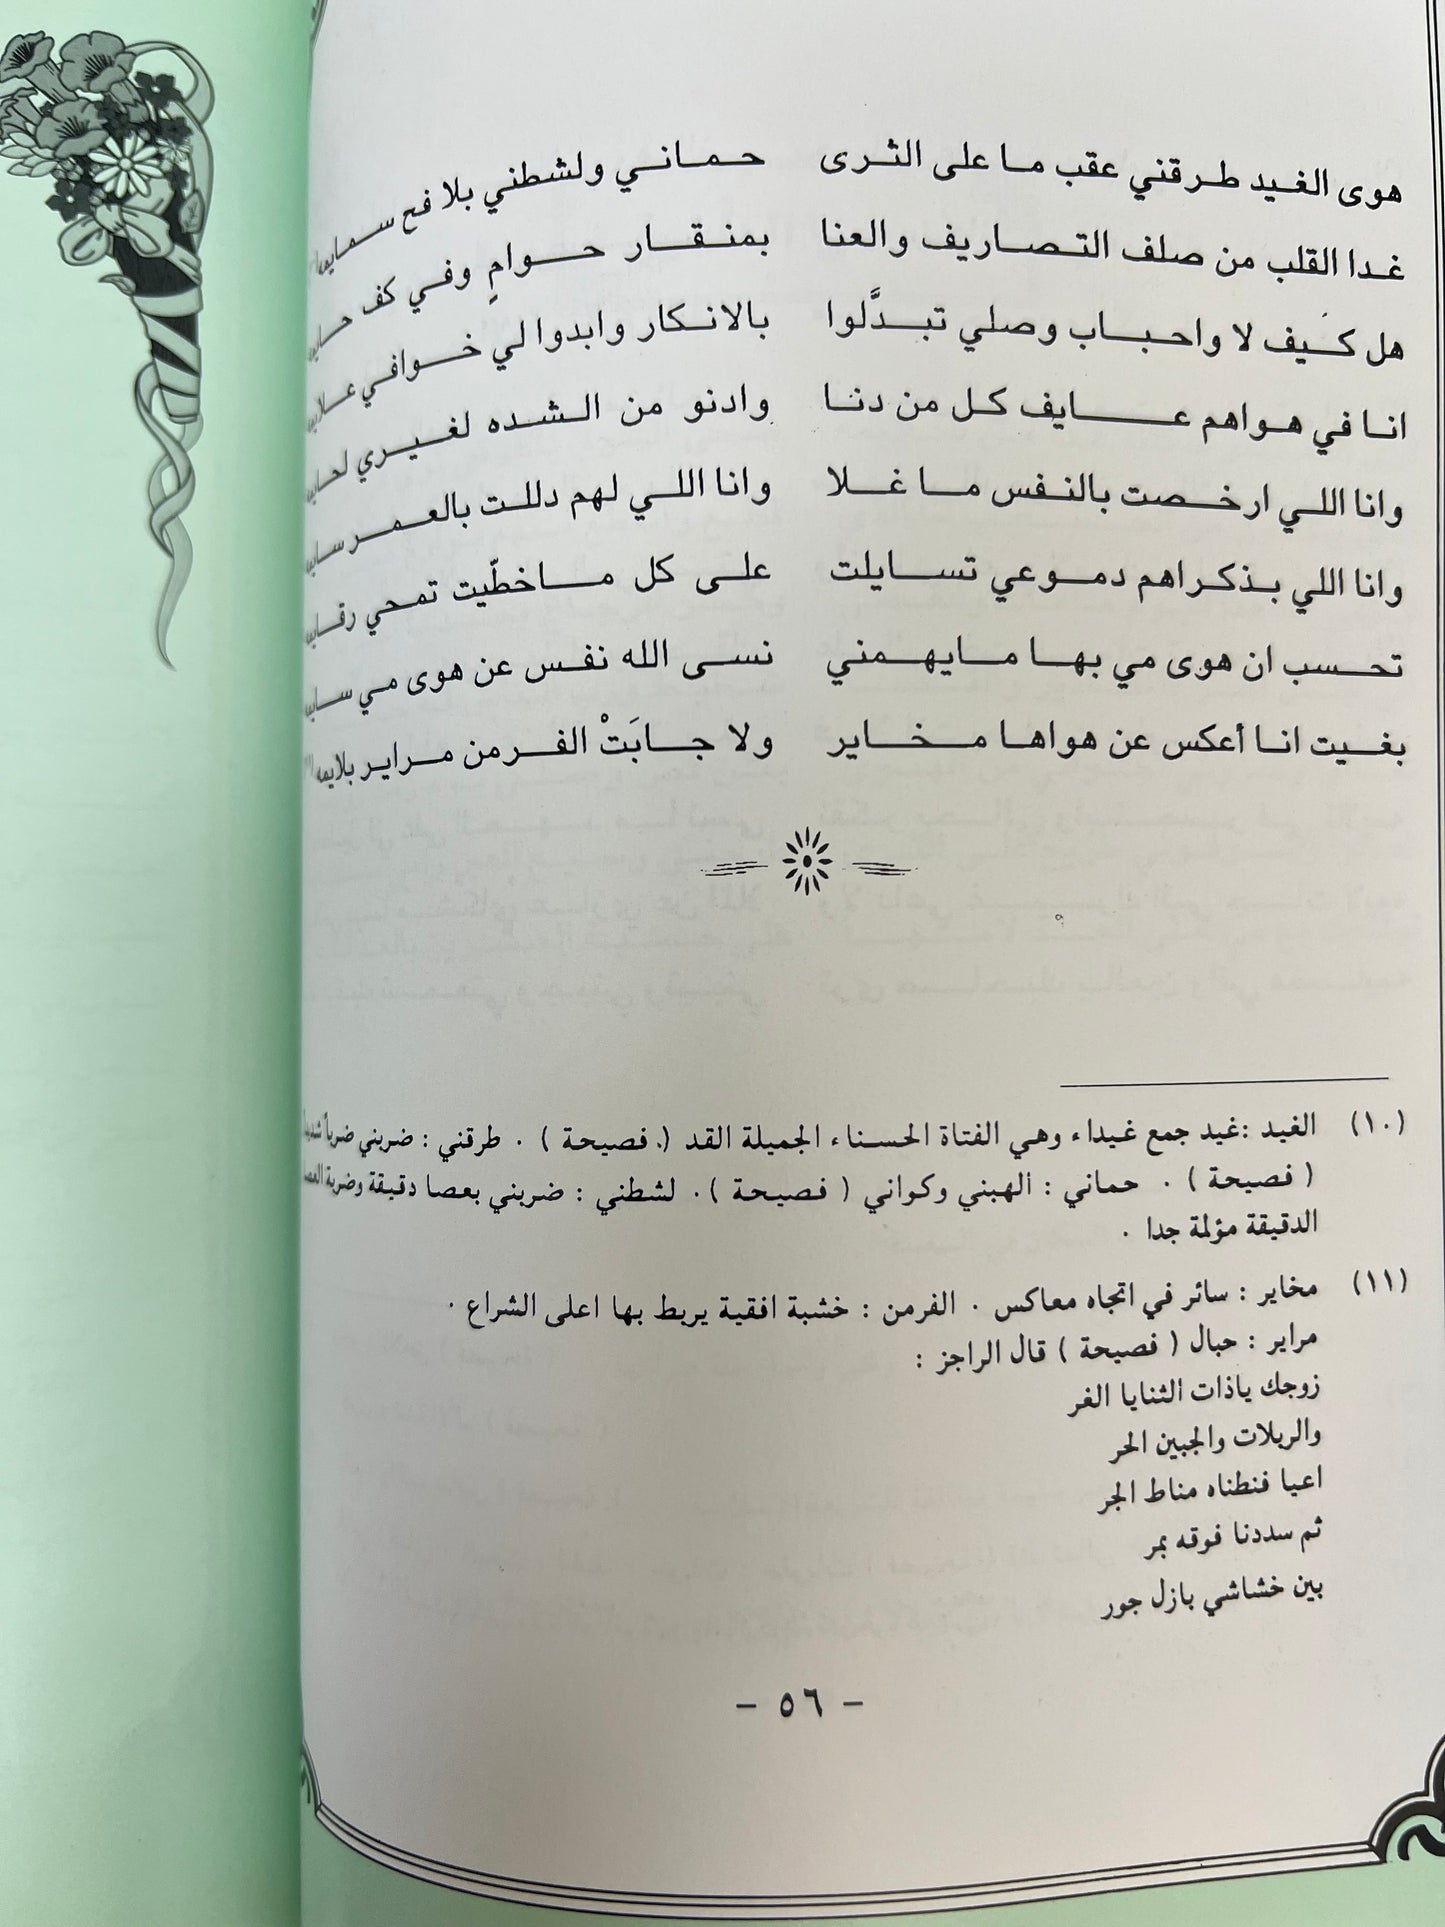 هوى الغيد طرقني عقب ما على الثرى حماني ولشطني بلا فح سمايمه
غدا القلب من صلف التصاريف والعنا بمنقار حوامٍ وفي كف حايمه
هل كيف لا واحباب وصلي تبدَّلوا بالانكار وابدوا لي خوافي علايمه
انا في هواهم عايف كل من دنا وادنو من الشده لغيري لحايمه
وانا اللي ارخصت بالنفس ما غلا وانا اللي لهم دللت بالعمر سايمه
وانا اللي بذكراهم دموعي تسايلت على كل ماخطّيت تمحي رقايمه
تحسب ان هوى مي بها مايهمني نسى الله نفس عن هوى مي سايمه
بغيت انا أعكس عن هواها مخاير ولا جابَتْ الفرمن مراير بلايمه
(١٠) الغيد : غيد جمع غيداء وهي الفتاة الحسناء الجميلة القد ( فصيحة ) . طرقني : ضربني ضرباً
( فصيحة ) . حماني : الهبني وكواني ( فصيحة ) . لشطني : ضربني بعصا دقيقة وضربة العصا
الدقيقة مؤلمة جدا .
(١١) مخاير : سائر في اتجاه معاكس . الفرمن : خشبة افقية يربط بها اعلى الشراع .
مراير : حبال ( فصيحة ) قال الراجز :
زوجك ياذات الثنايا الغر
والربلات والجبين الحر
اعيا فنطناه مناط الجر
ثم سددنا فوقه بمر
بين خشاشي بازل جور
- ٥٦ -